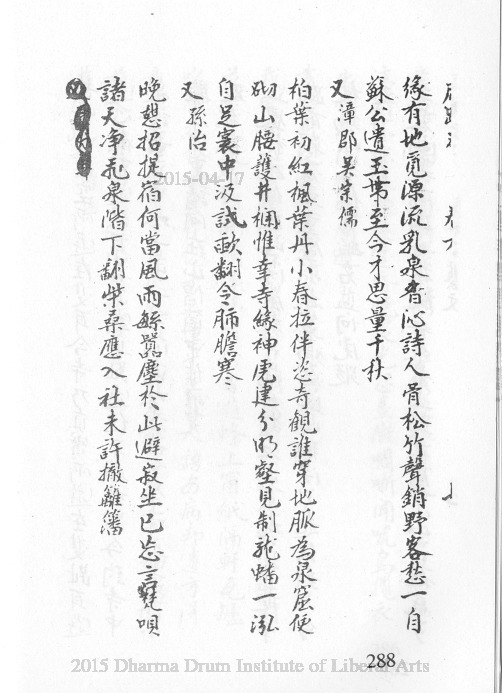 緣有地覓源流乳泉香沁詩人骨松竹聲銷野客愁一自
蘇公遺玉帶至今才思量千秋
又漳郡吳 儒
柏葉初紅楓葉丹小春拉伴恣奇觀誰穿地脈為泉窟便
砌山腰護井欄惟幸寺緣神虎建分明壑見制龍蟠一泓
自足裏中汲試歃翻令肺膽寒
又孫治
晚憩招提宿何當風雨繇囂塵於此避寂坐已忘言 唄
諸天淨飛泉階下翻柴桑應入社未許撤籬籓
288
2015-04-17
2015 Dharma Drum Institute of Liberal Arts